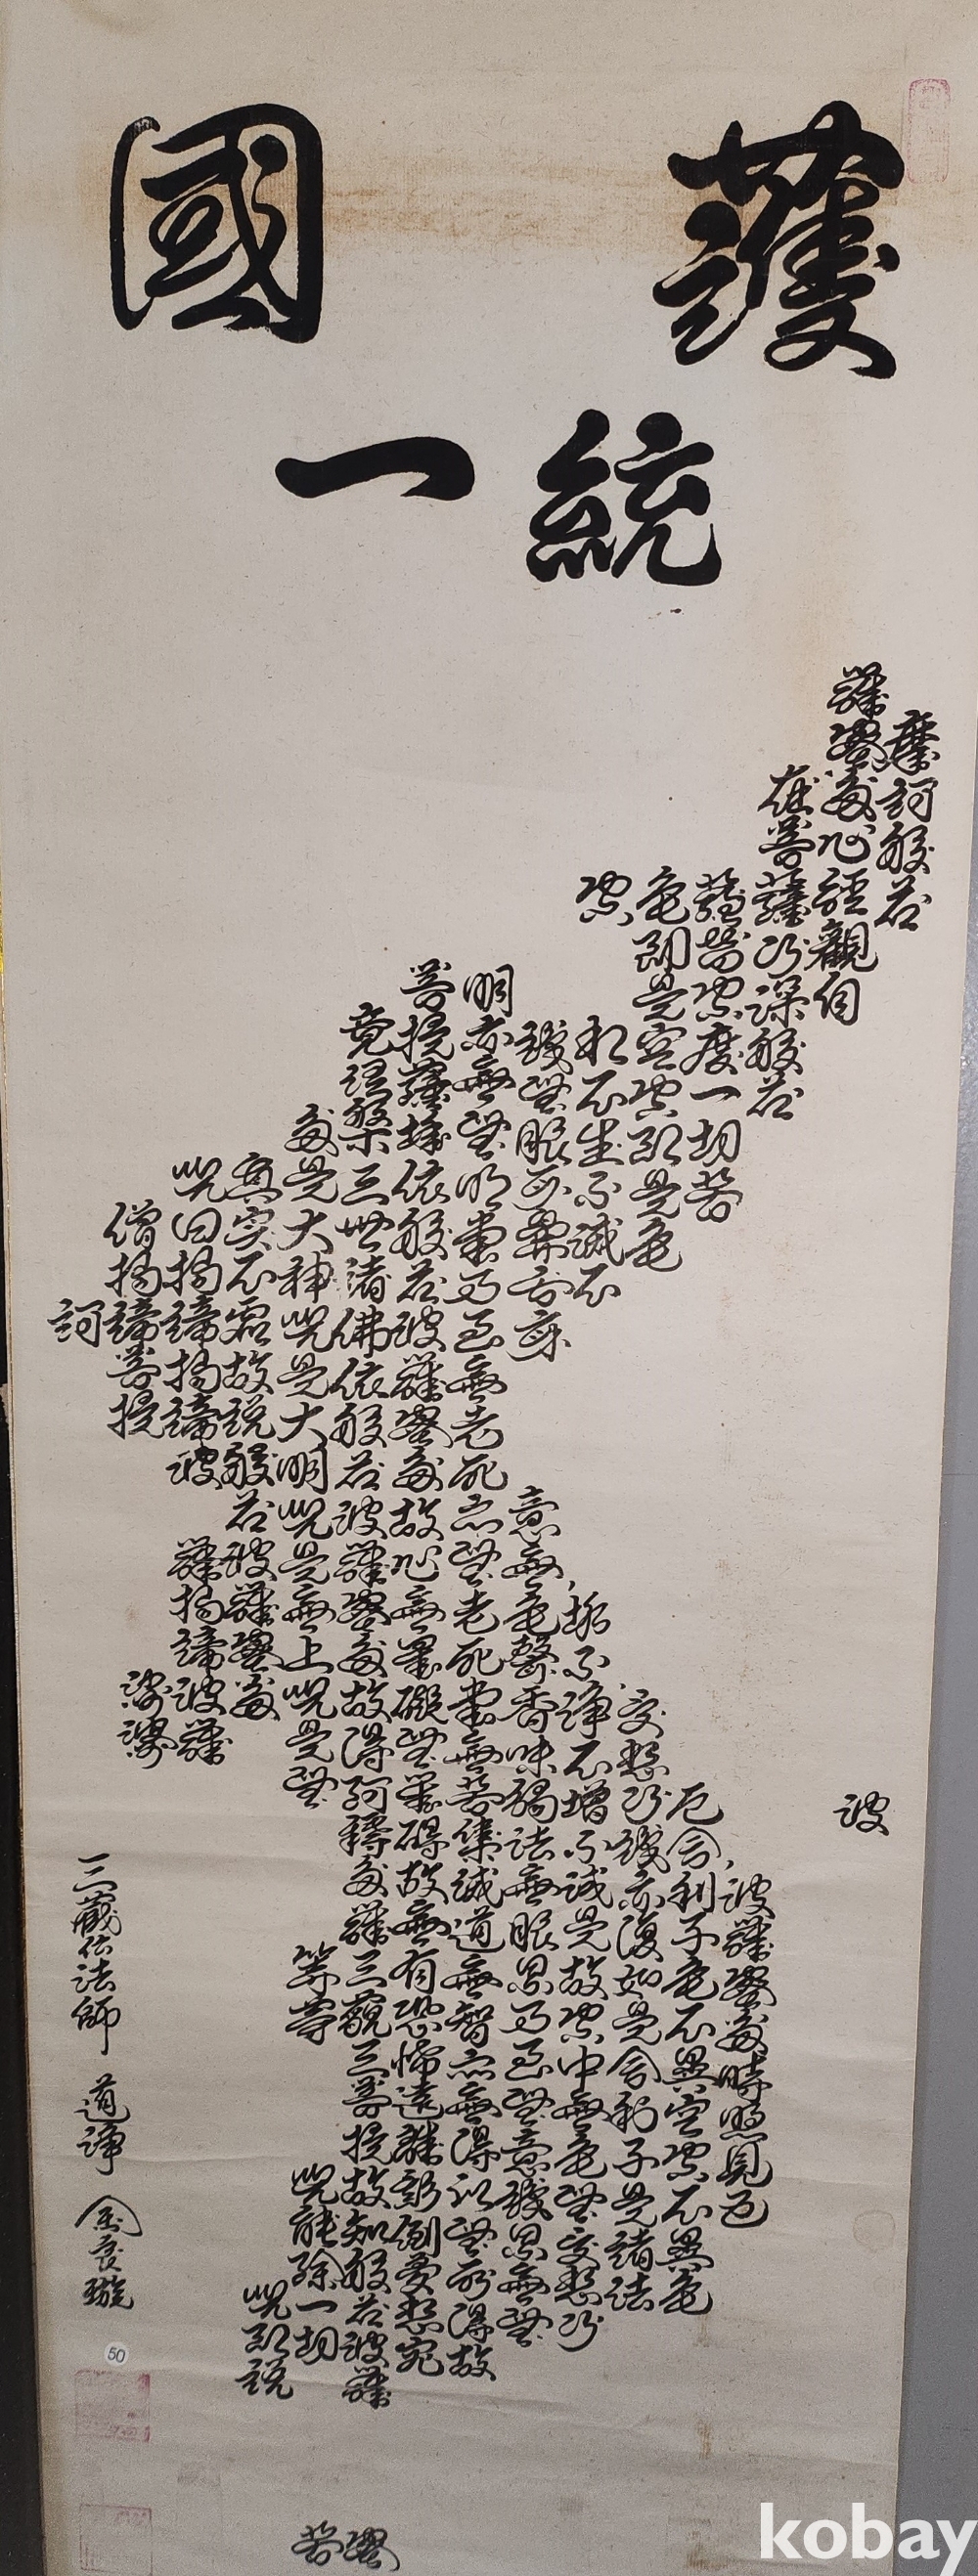 護國
統一
摩訶般若波
羅蜜多心經觀自
在菩薩行深般若波羅蜜多時照見五
蘊皆空度一切苦厄舍利子色不異空空不異色
色即是空空即是色受想行識亦復如是舍利子是諸法
空相不生不滅不垢不淨不增不減是故空中無色無受想行
識無眼耳鼻舌身意無色聲香味觸法無眼界乃至無意識界無無
明亦無無明盡乃至無老死亦無老死盡無苦集滅道無智亦無得以無所得故
菩提薩埵依般若波羅蜜多故心無罣礙無罣碍故無有恐怖遠離顛倒夢想究
竟涅槃三世諸佛依般若波羅蜜多故得阿耨多羅三藐三菩提故知般若波羅蜜
多是大神呪是大明呪是無上呪是無等等呪能除一切苦
真實不虛故說般若波羅蜜多呪即說
呪曰揭諦揭諦波羅揭諦波羅
僧揭諦菩提娑婆
訶
三藏伝法師 道諍 金
50
kobay